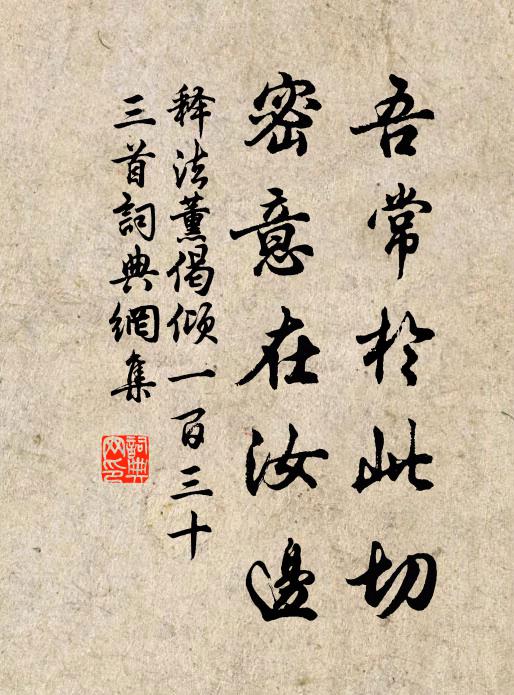 吾常於此切
密意在汝邊
释法薰偈倾一百三十
三首詞典網集
詞典网印